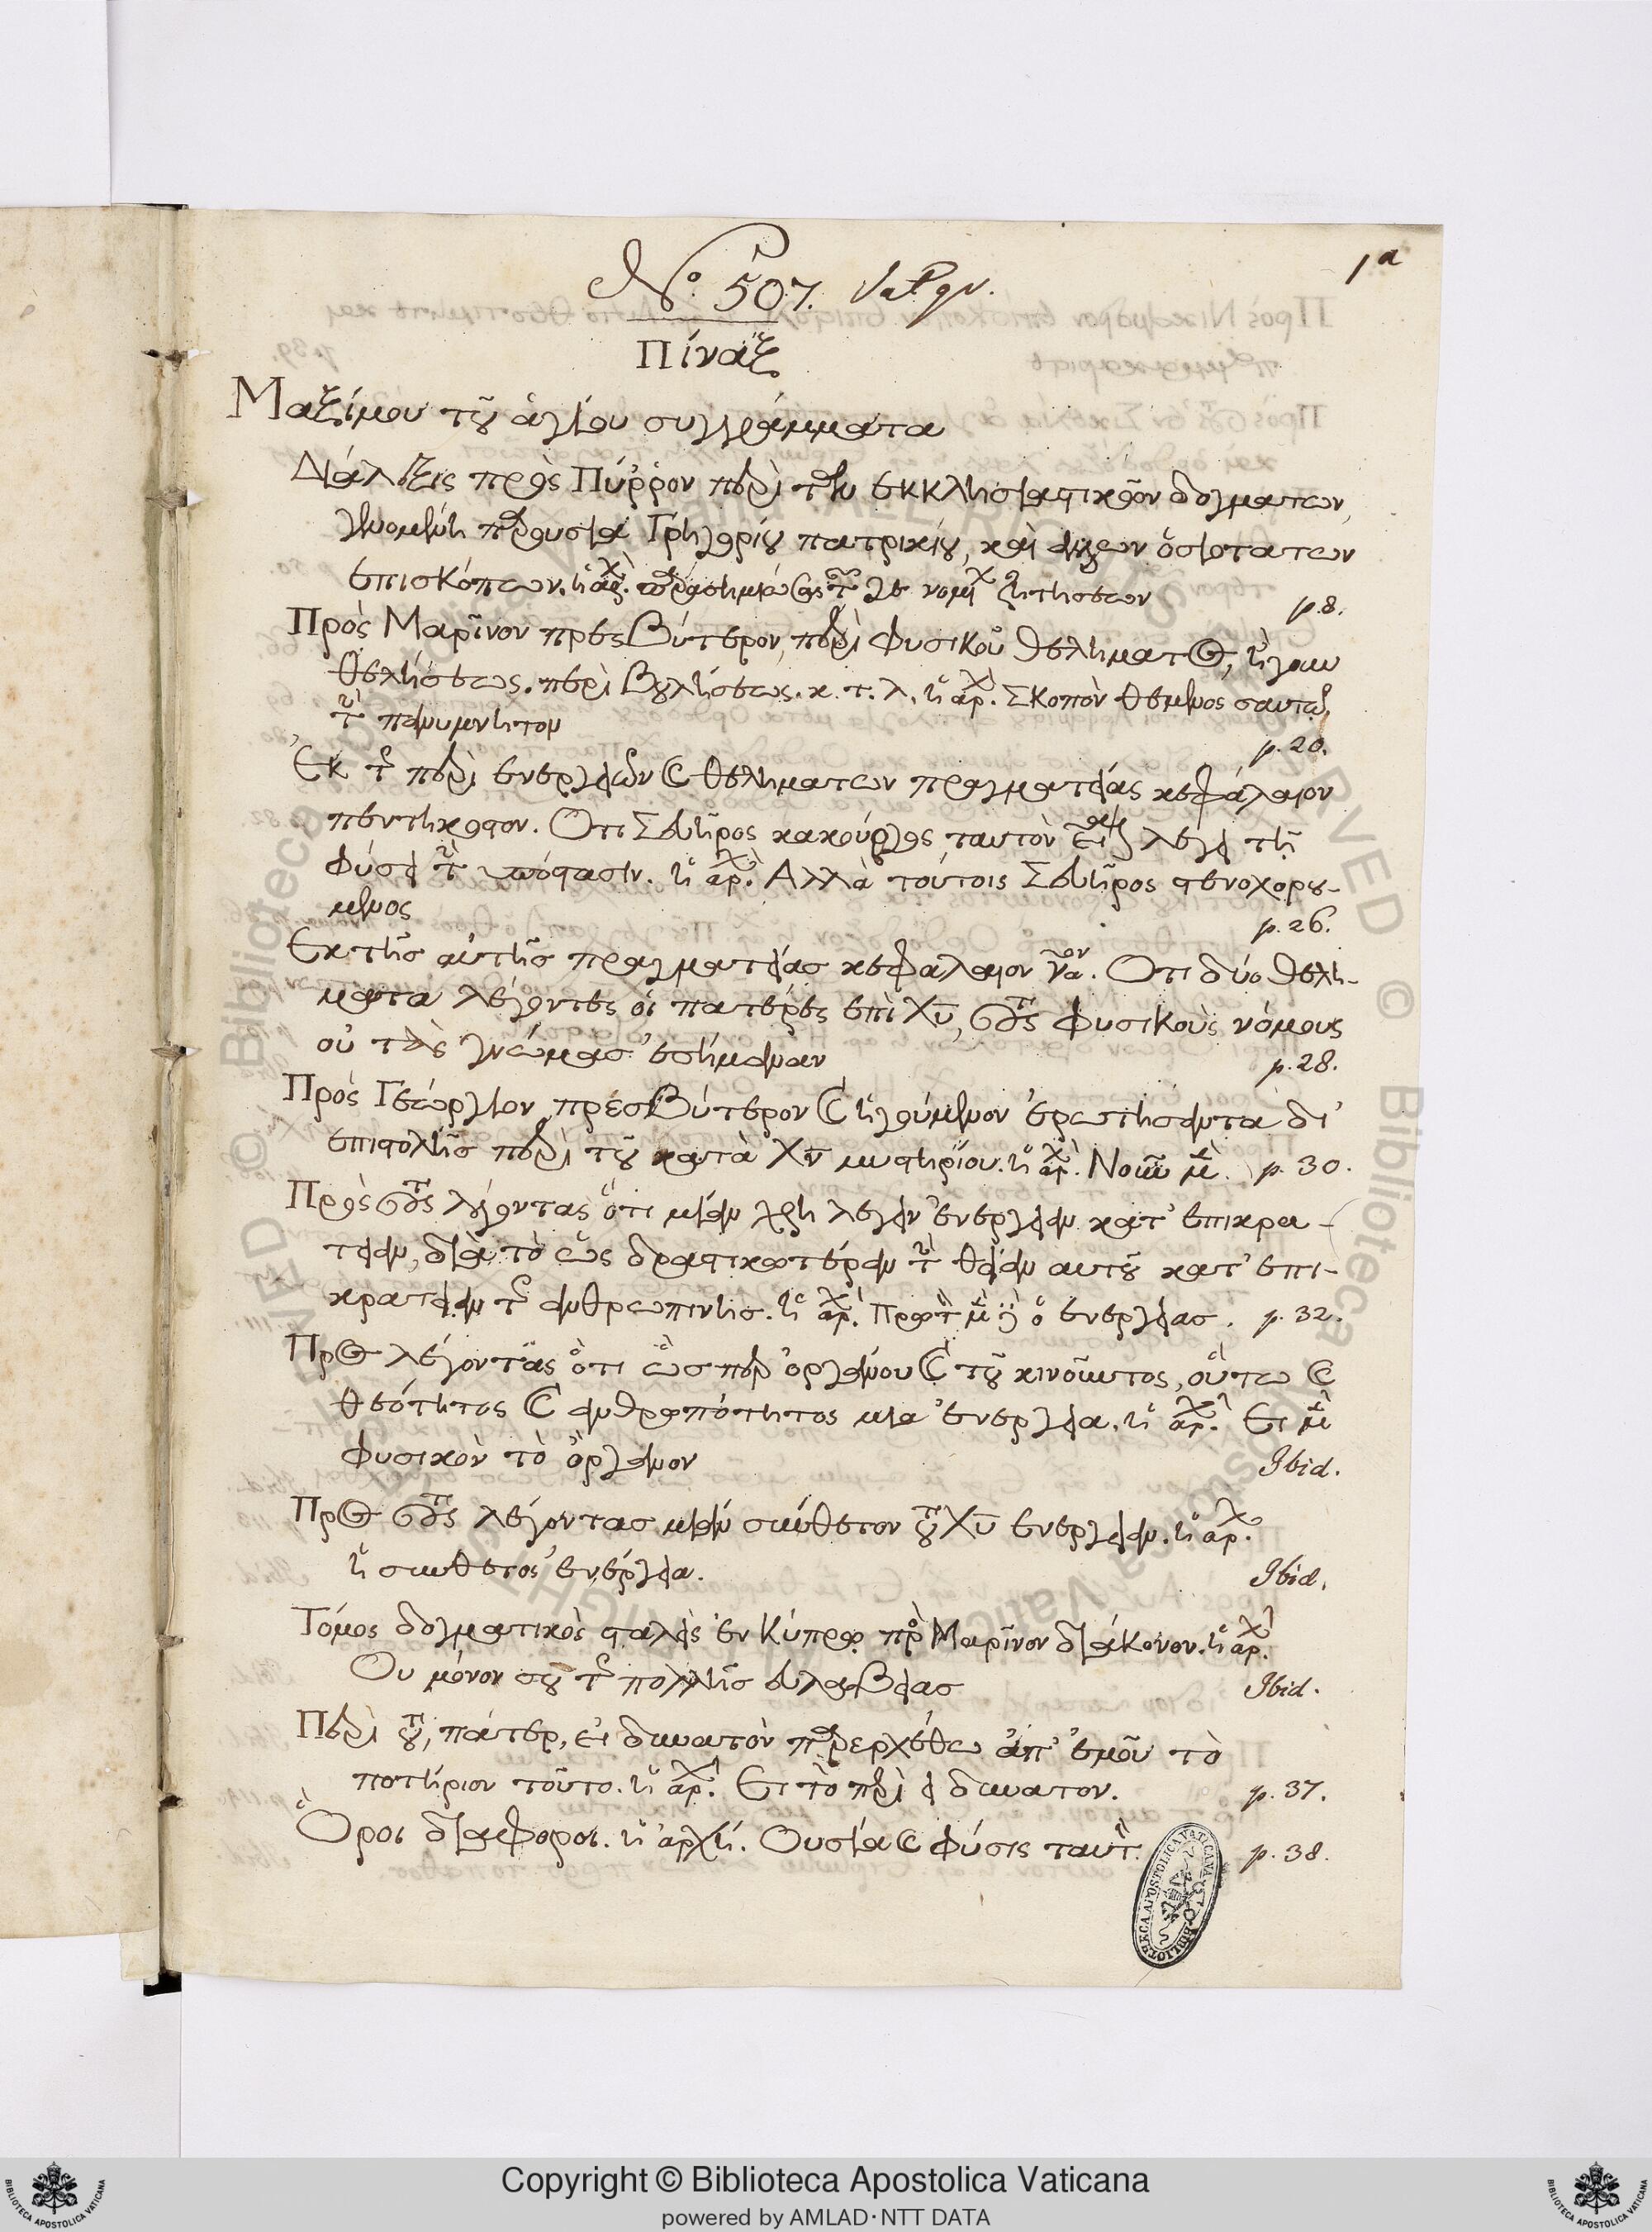 1ª
Nº. 507. Vat gr.
Πίναξ
Μαξίμου τοῦ ἁγίου συγγράμματα
Διάλεξις πρὸς Πύρρον περὶ τῶν εκκλησιαστικῶν δογματων,
γενομένη παρουσία Γρηγορίου πατρικίου, καὶ ἄλλων ὁσιοτατων
επισκόπων. ἡ ἀρχ. νομι ζητησεων p.8.
Πρὸς Μαρῖνον πρεσβύτερον, περὶ φυσικοῦ θελήματος, ἤγουν
θελήσεως. περὶ βουλήσεως. κ. τ. λ. ἡ ἀρχ. Σκοπὸν θέμενος σαυτῷ
p. 20.
Ἐκ τῆς περὶ ενεργειῶν καὶ θελημάτων πραγματείας κεφάλαιον
πεντηκοστον. Οτι Σευῆρος κακούργως ταυτὸν εἶναι λέγει τῇ
φύσει τὴν υπόστασιν. ἡ ἀρχ. Αλλὰ τούτοις Σευῆρος στενοχορου-
μενος p. 26.
Εκ τῆς αὐτῆς πραγματείας κεφαλαιον ναον. Οτι δύο θελή-
ματα λέγοντες οἱ πατέρες επὶ Χυ, τοὺς φυσικοὺς νόμους
οὐ τὰς γνώμας εσήμαναν p. 28.
Πρὸς Γεώργιον πρεσβύτερον καὶ ἡγούμενον ἐρωτήσαντα δι'
επιστολῆς περὶ τοῦ κατὰ Χν μυστηρίου. ἡ ἀρχ. Νοῶ μὲν p. 30.
Πρὸς τοὺς λέγοντας ὅτι μίαν χρὴ λέγειν ἐνεργειαν κατ' επικρα-
τειαν, διὰ τὸ ὡς δραστικωτέραν τὴν θείαν αυτοῦ κατ' επι-
κρατειαν τῆς ανθρωπινης. ἡ ἀρχ. Πρῶτον μὲν ὁ ενεργειας. p. 32.
Προς λέγοντας ὅτι ὥσπερ ὀργάνου καὶ τοῦ κινοῦντος, οὕτω καὶ
θεότητος καὶ ανθρωπότητος μια ἐνεργεια. ἡ ἀρχ. Ει μὲν
φυσικὸν τὸ ὄργανον Ibid.
Προς τοὺς λέγοντας μιαν σύνθετον τοῦ Χυ ενεργειαν. ἡ ἀρχ.
ἡ συνθετος ἐνέργεια. Ibid.
Τόμος δογματικὸς σταλεὶς ἐν Κύπρῳ πρὸς Μαρῖνον διάκονον. ἡ ἀρχ.
Ου μόνον σου τῆς πολλῆς ευλαβειας Ibid.
Περὶ τοῦ, πάτερ, εἰ δυνατὸν παρερχέσθω ἀπ' ἐμοῦ τὸ
ποτήριον τοῦτο. ἡ ἀρχ. Ει τὸ περὶ εἰ δυνατον. p. 37.
Ὅροι διάφοροι. ἡ ἀρχή. Ουσία καὶ φύσις ταυτ. p. 38.
BIBLIOTECA APOSTOLICA VATICANA
Copyright © Biblioteca Apostolica Vaticana
powered by AMLAD·NTT DATA